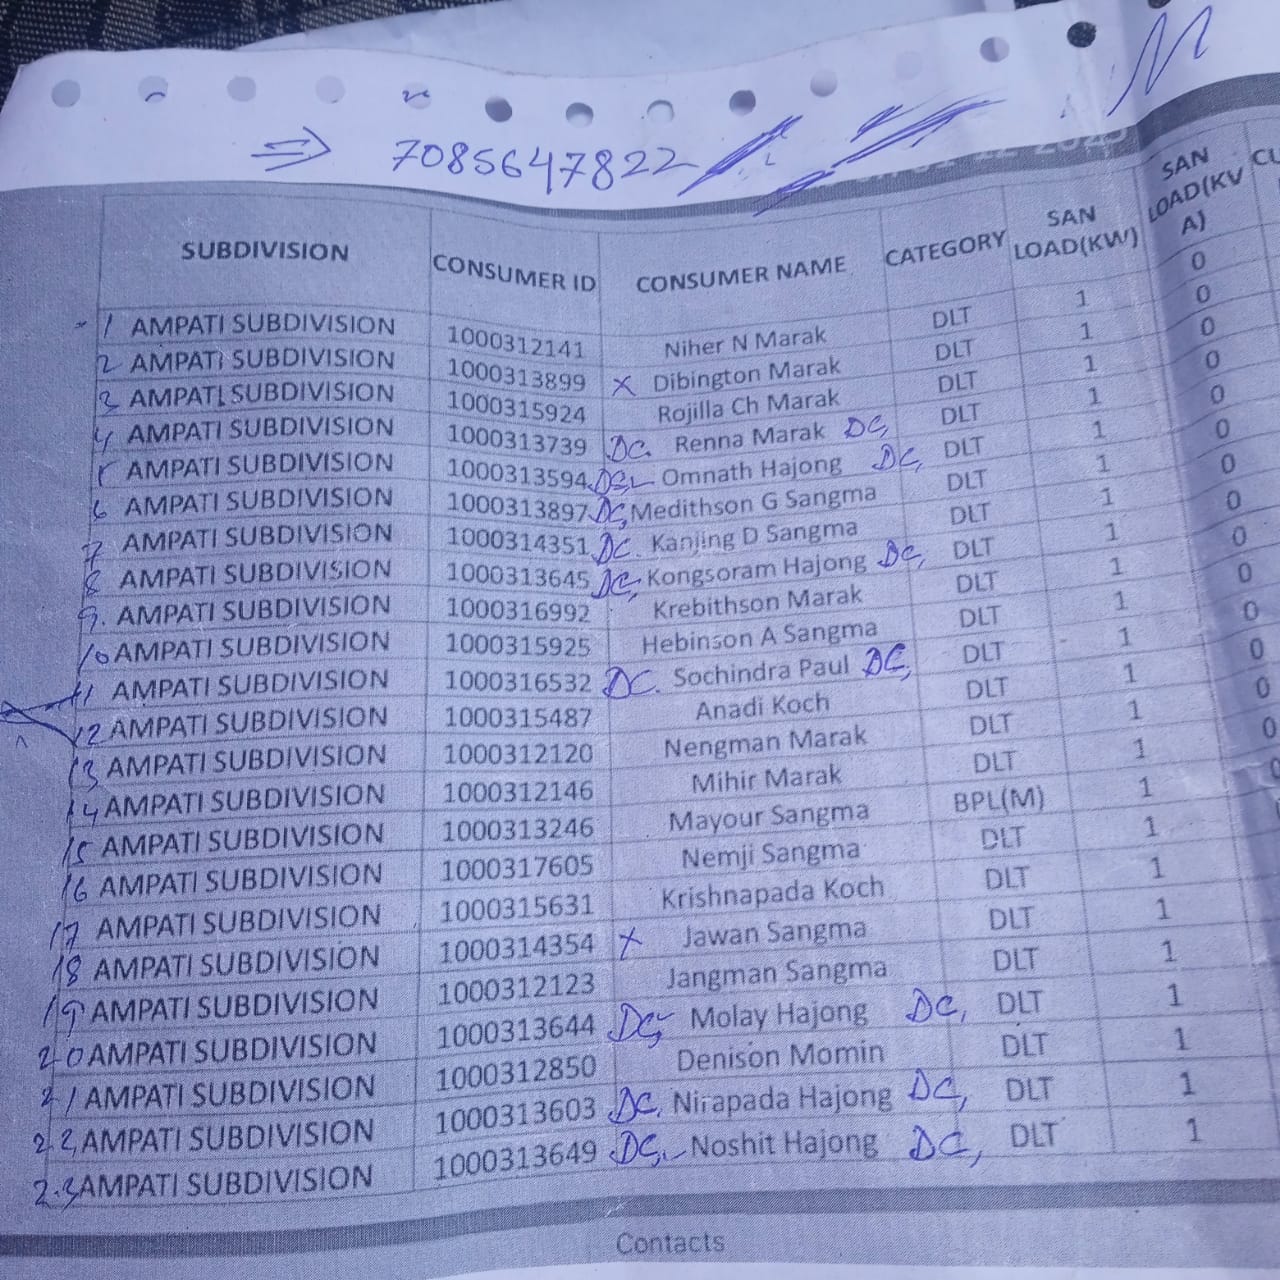 ⇒ 7085647822
SUBDIVISION CONSUMER ID CONSUMER NAME CATEGORY SAN LOAD(KW) SAN LOAD(KVA)
1 AMPATI SUBDIVISION 1000312141 Niher N Marak DLT 1 0
2 AMPATI SUBDIVISION 1000313899 X Dibington Marak DLT 1 0
3 AMPATI SUBDIVISION 1000315924 Rojilla Ch Marak DLT 1 0
4 AMPATI SUBDIVISION 1000313739 DC. Renna Marak DC, DLT 1 0
5 AMPATI SUBDIVISION 1000313594 DC, Omnath Hajong DC, DLT 1 0
6 AMPATI SUBDIVISION 1000313897 DC, Medithson G Sangma DLT 1 0
7 AMPATI SUBDIVISION 1000314351 DC. Kanjing D Sangma DLT 1 0
8 AMPATI SUBDIVISION 1000313645 DC, Kongsoram Hajong DC, DLT 1 0
9. AMPATI SUBDIVISION 1000316992 Krebithson Marak DLT 1 0
10 AMPATI SUBDIVISION 1000315925 Hebinson A Sangma DLT 1 0
11 AMPATI SUBDIVISION 1000316532 DC. Sochindra Paul DC, DLT 1 0
12 AMPATI SUBDIVISION 1000315487 Anadi Koch DLT 1 0
13 AMPATI SUBDIVISION 1000312120 Nengman Marak DLT 1 0
14 AMPATI SUBDIVISION 1000312146 Mihir Marak DLT 1 0
15 AMPATI SUBDIVISION 1000313246 Mayour Sangma BPL(M) 1 0
16 AMPATI SUBDIVISION 1000317605 Nemji Sangma DLT 1
17 AMPATI SUBDIVISION 1000315631 Krishnapada Koch DLT 1
18 AMPATI SUBDIVISION 1000314354 X Jawan Sangma DLT 1
19 AMPATI SUBDIVISION 1000312123 Jangman Sangma DLT 1
20 AMPATI SUBDIVISION 1000313644 DC, Molay Hajong DC, DLT 1
21 AMPATI SUBDIVISION 1000312850 Denison Momin DLT 1
22 AMPATI SUBDIVISION 1000313603 DC, Nirapada Hajong DC, DLT 1
23 AMPATI SUBDIVISION 1000313649 DC, Noshit Hajong DC, DLT 1
Contacts